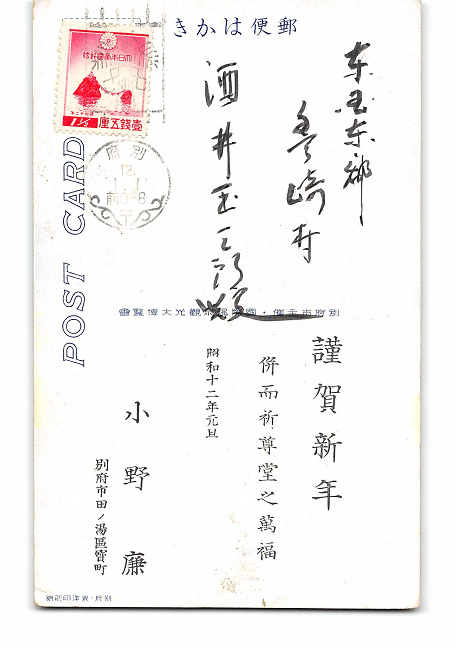 郵便はかき
POST CARD
壹錢五厘
1½
別府
12.1.1
前0-8
東国東郡
豊崎村
酒井玉三郎殿
別府市主催・国際温泉観光大博覧會
謹賀新年
併而祈尊堂之萬福
昭和十二年元旦
小野廉
別府市田ノ湯區寶町
別府・東洋印刷納